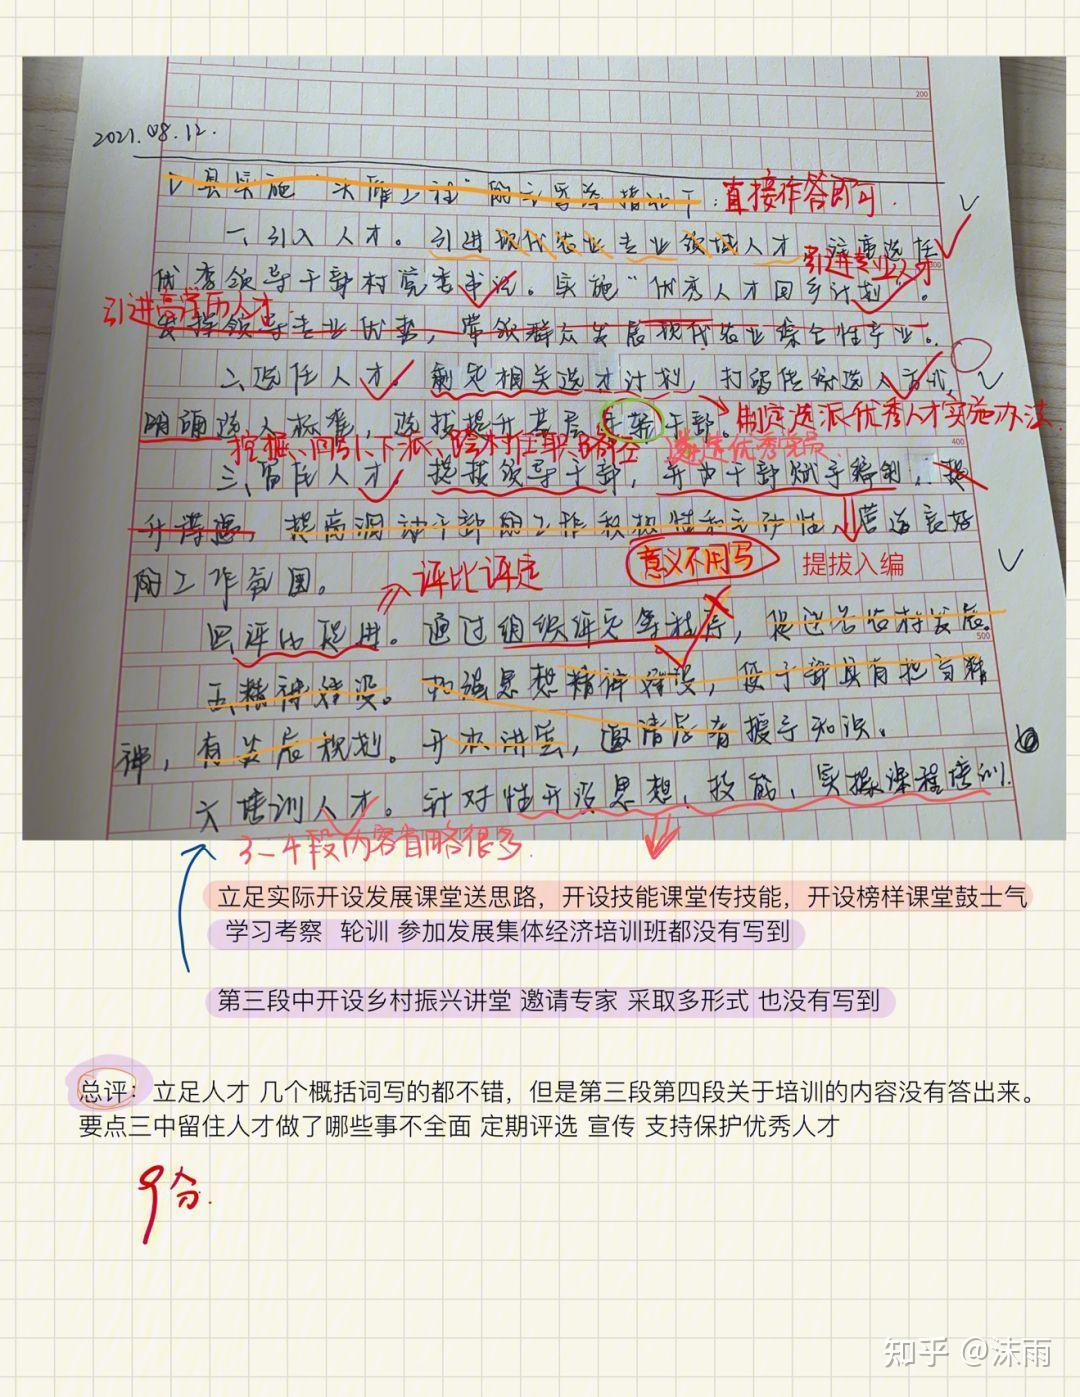 200
2021.08.12.
V县实施“头雁工程”的主要举措如下：直接作答即可.
一、引入人才。引进现代农业专业领域人才
引进专业人才
300
优秀领导干部村党委书记。实施“优秀人才回乡计划”。
引进高学历人才.
发挥领导专业优势，带领群众发展现代农业综合性产业。
二、选任人才。制定相关选才计划，打破传统选人方式，
明确选人标准，选拔提升基层年轻干部。
制定选派优秀人才实施办法.
挖掘、回引、下派、跨村任职
遴选优秀党员
400
三、留住人才。提拔领导干部，并由干部赋予编制，提
升待遇，提高调动干部的工作积极性和主动性，营造良好
的工作氛围。
意义不用写
提拔入编
评比评定
四、评比促进。通过组织评选等程序，促进各村发展。
500
五、精神建设。加强思想精神建设，使干部具有担当精
神，有发展规划。开办讲堂，邀请授予知识。
六、培训人才。针对性开设思想、技能、实操课程培训.
3-4段内容省略很多.
立足实际开设发展课堂送思路，开设技能课堂传技能，开设榜样课堂鼓士气
学习考察 轮训 参加发展集体经济培训班都没有写到
第三段中开设乡村振兴讲堂 邀请专家 采取多形式 也没有写到
总评：立足人才 几个概括词写的都不错，但是第三段第四段关于培训的内容没有答出来。
要点三中留住人才做了哪些事不全面 定期评选 宣传 支持保护优秀人才
9分.
知乎 @沫雨